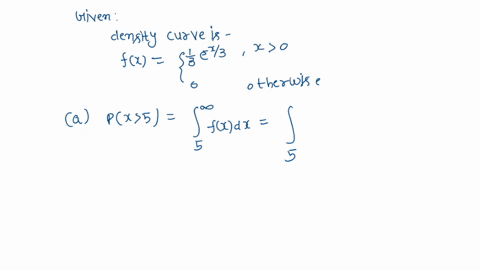 Given:
density curve is -
f(x) = { 1/3 e^x/3 , x > 0
0 otherwise
(a) P(x>5) = ∫_5^∞ f(x)dx = ∫_5